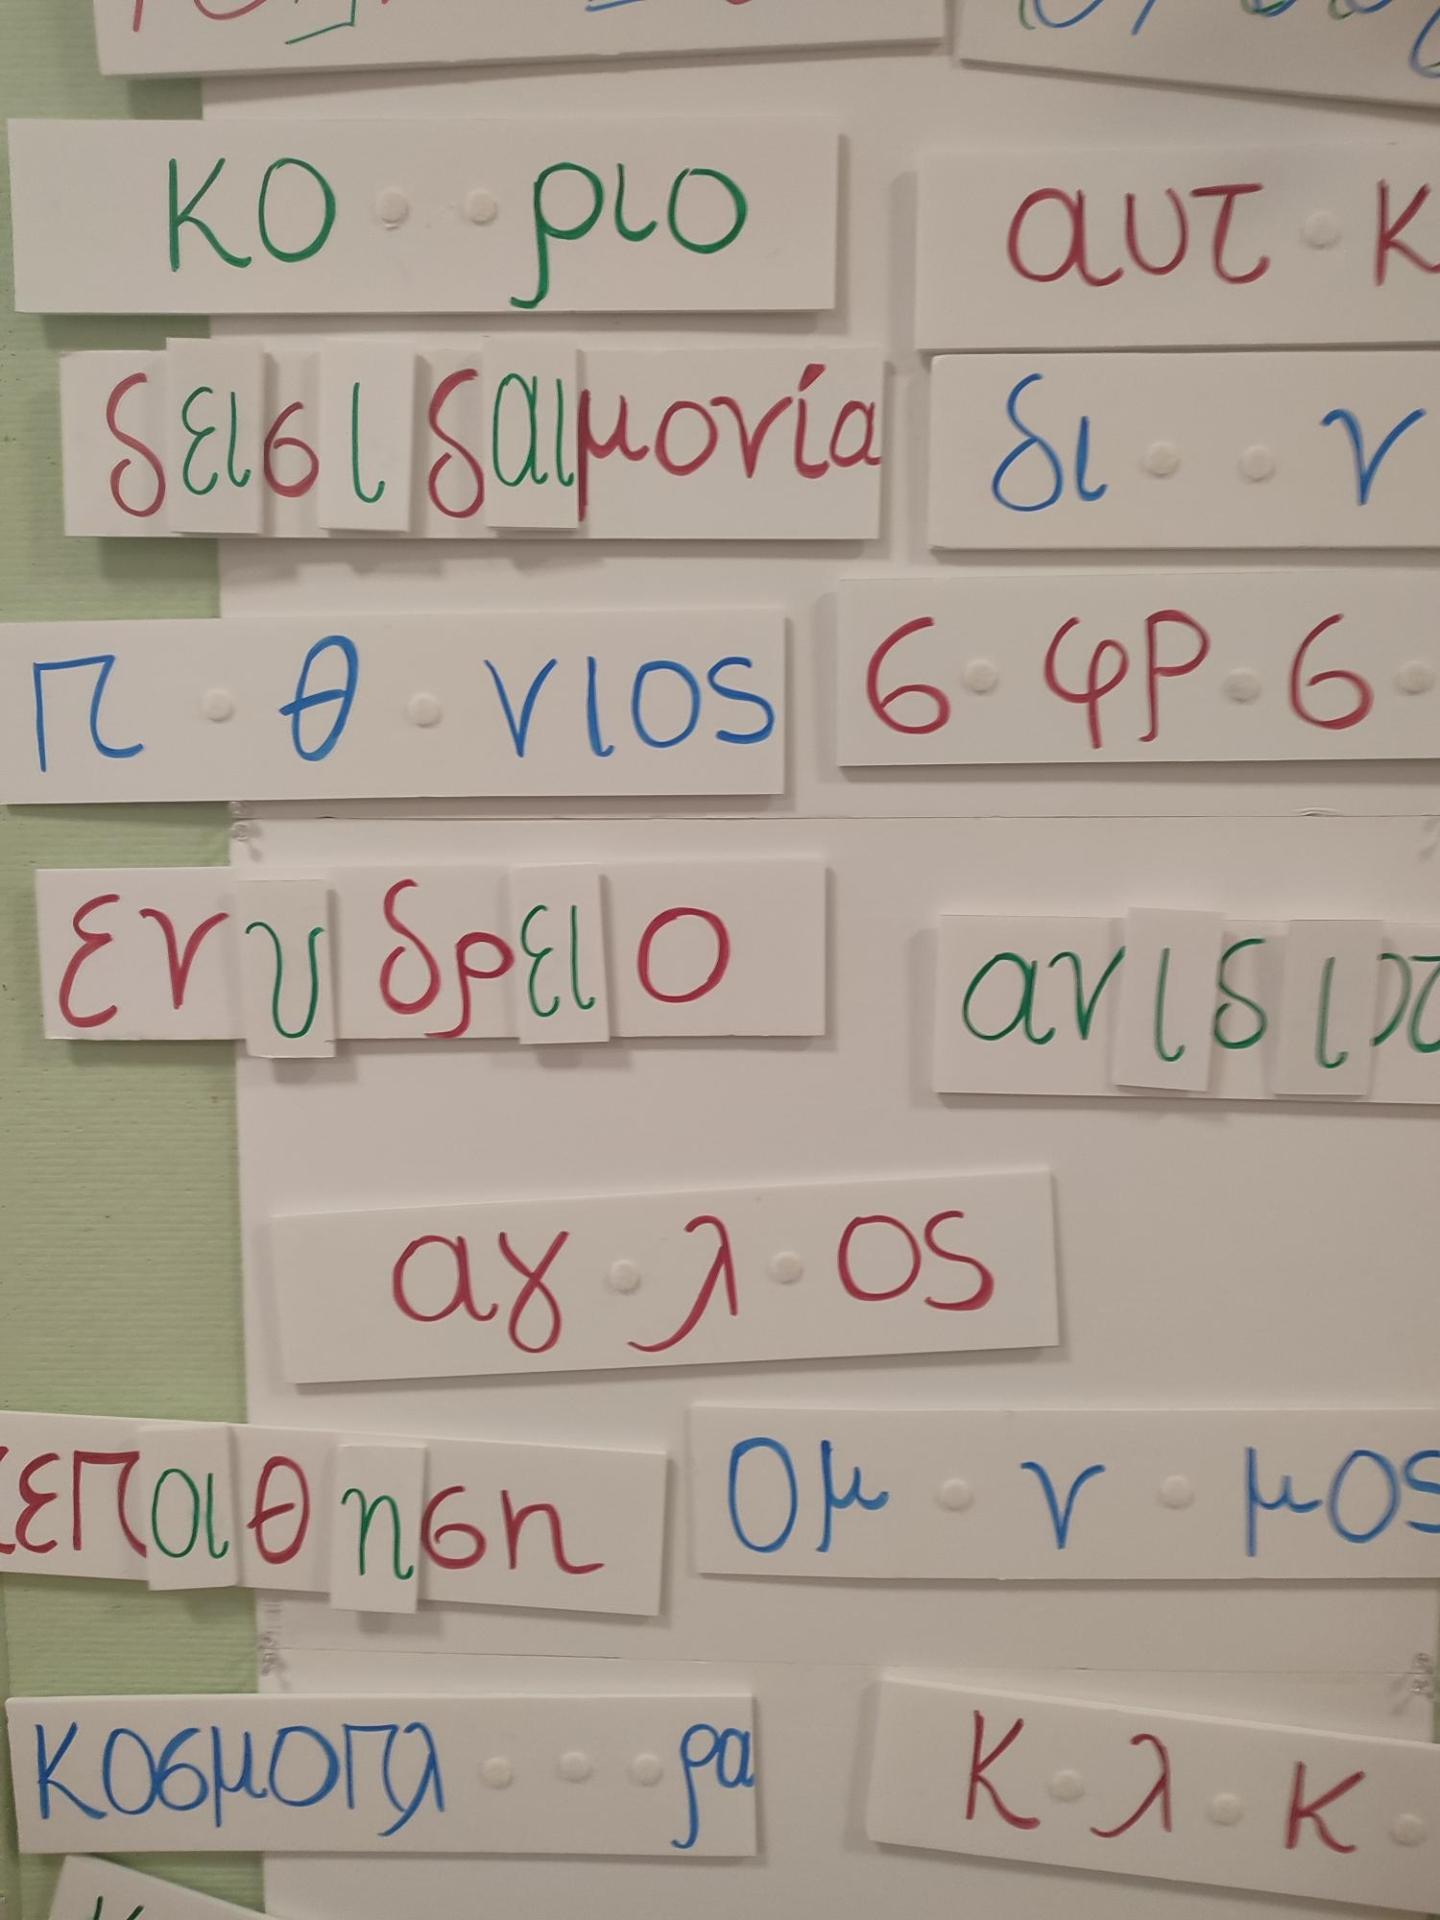 κο · · ριο
αυτ · κ
δεισιδαιμονία
δι · · ν
π · θ · νιος
σ · φρ · σ ·
ενυδρειο
ανιδιο
αγ · λ · ος
επαιθηση
ομ · ν · μος
κοσμοπλ · · · ρα
κ · λ · κ ·